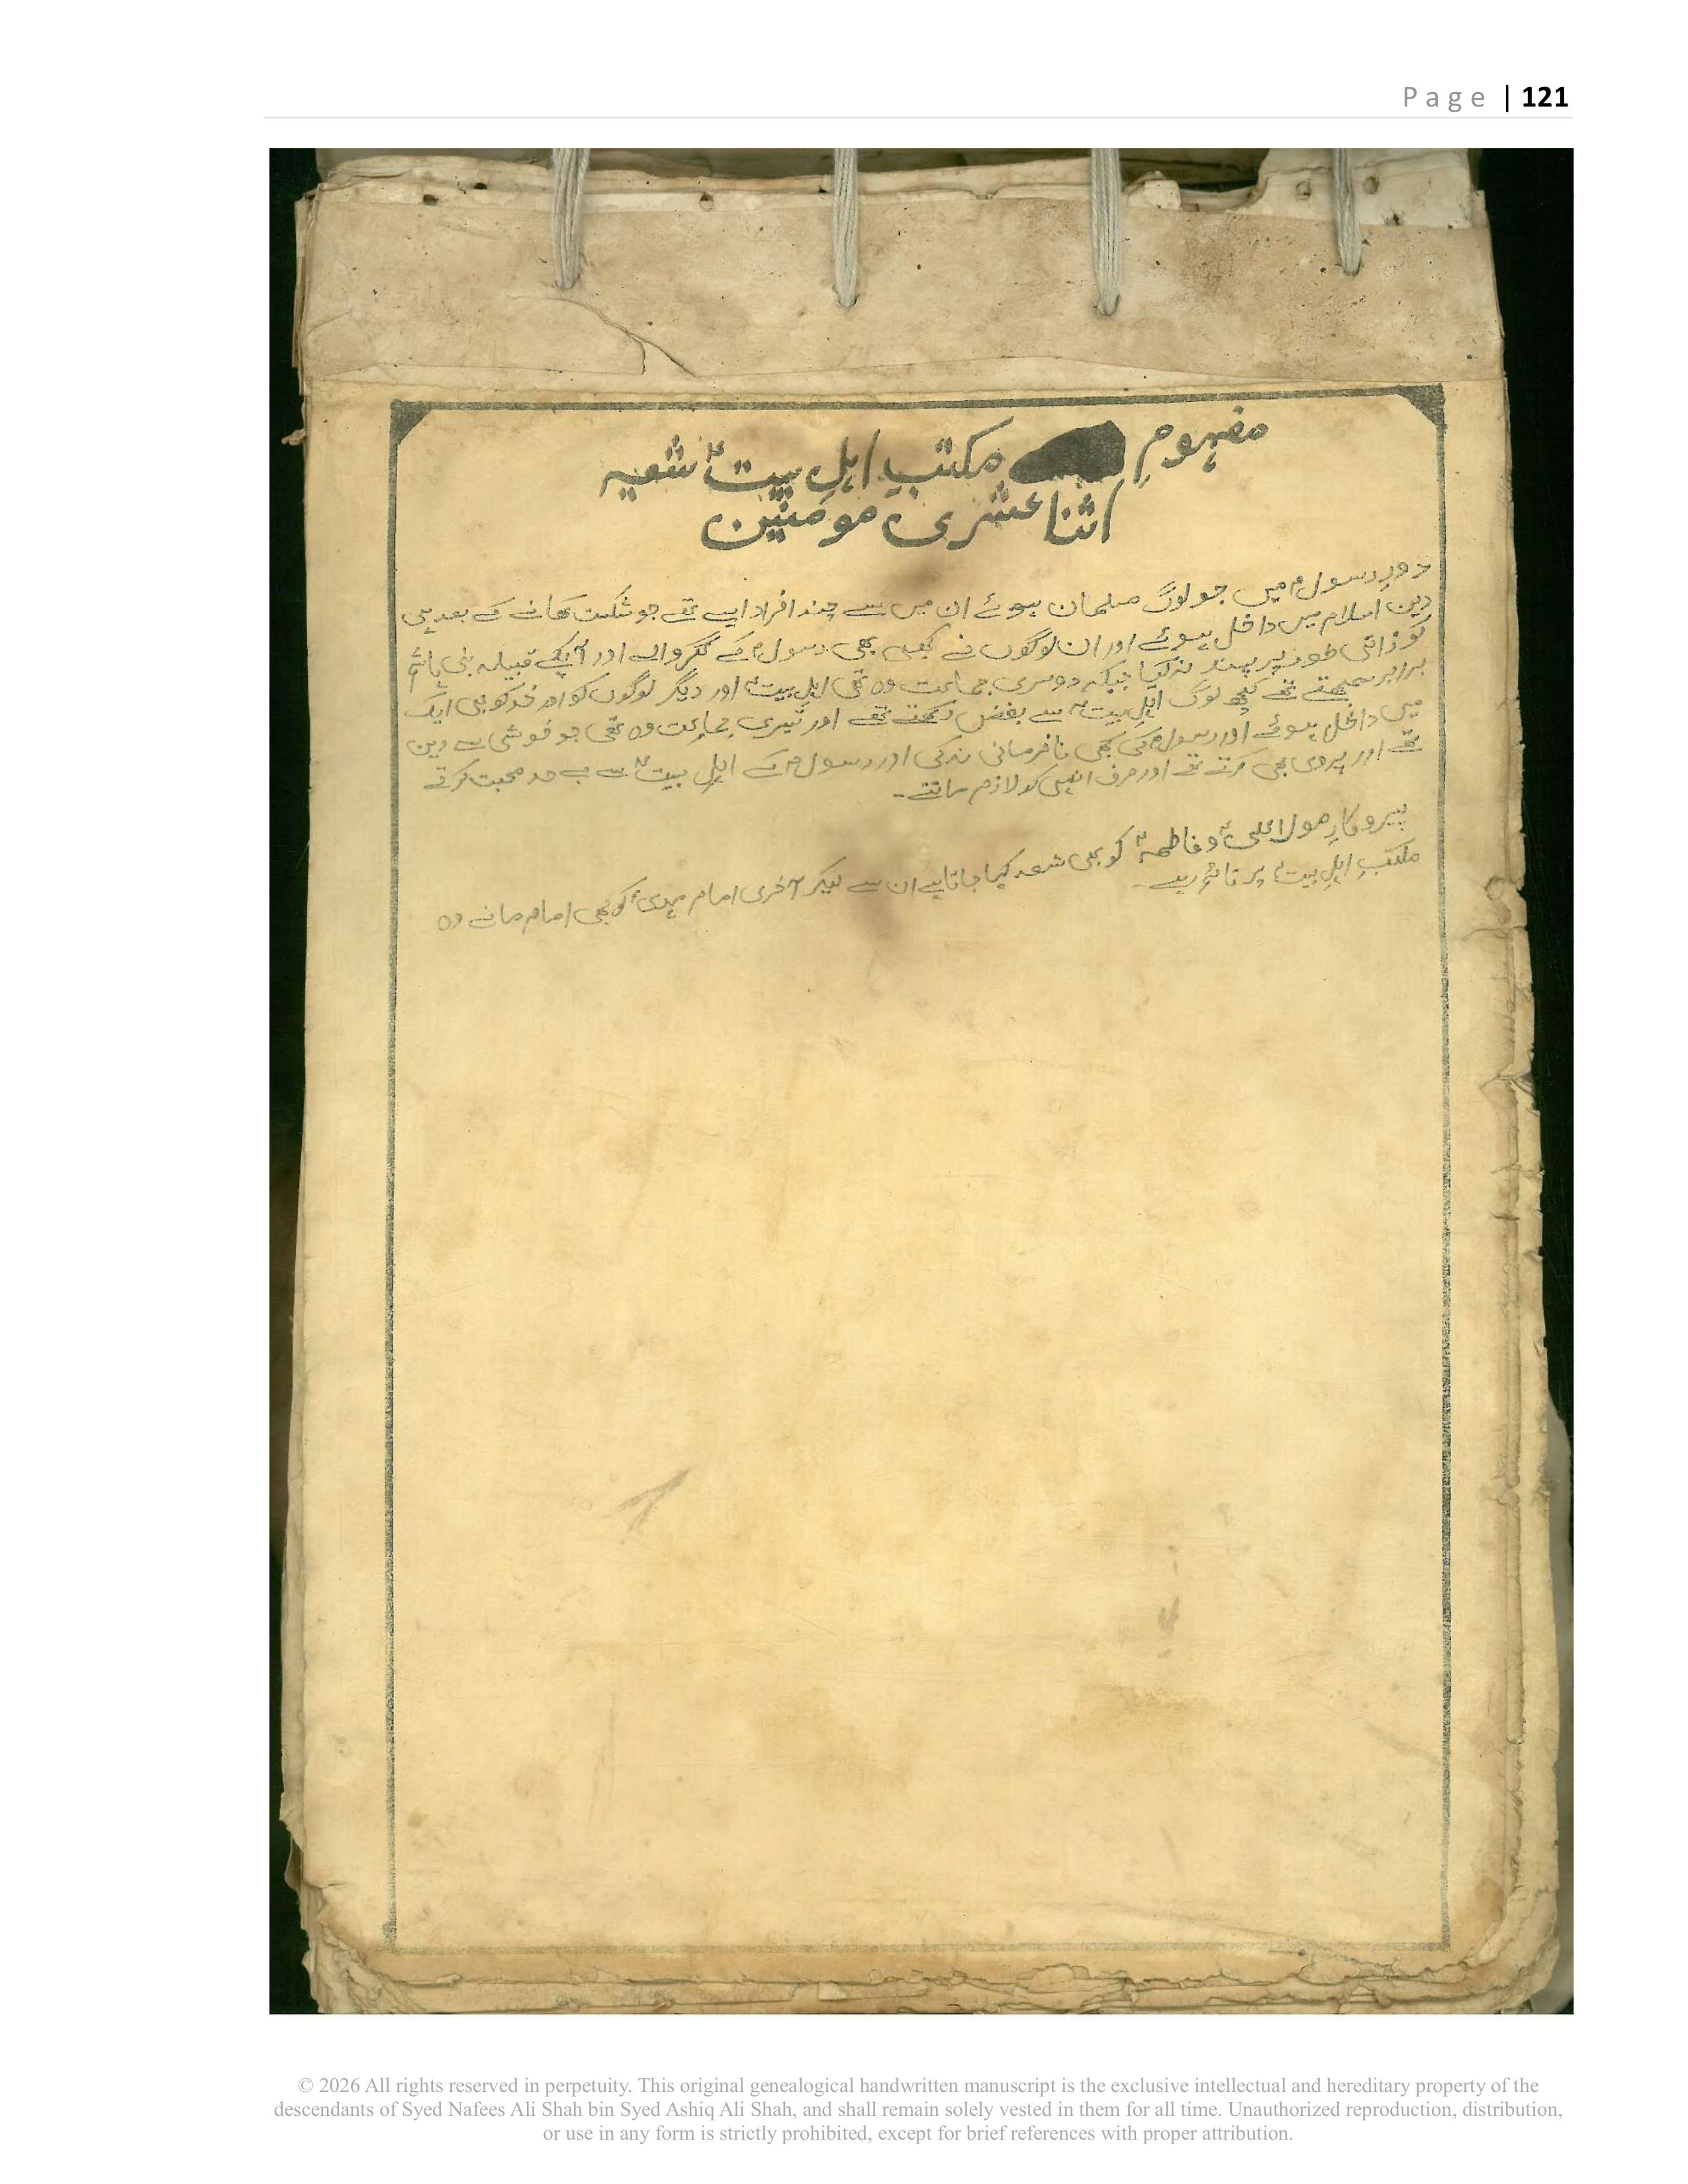 Page | 121
مفہومِ مکتبِ اہلِ بیتؑ شعیہ
اثنا عشری مومنین
دورِ رسولؐ میں جو لوگ مسلمان ہوئے ان میں سے چند افراد ایسے تھے جو شکست کھانے کے بعد ہی
دین اسلام میں داخل ہوئے اور ان لوگوں نے کبھی بھی رسولؐ کے گھر والے اور آپکے قبیلہ بنی ہاشم
کو ذاتی طور پر پسند نہ کیا جبکہ دوسری جماعت وہ تھی اہلِ بیتؑ اور دیگر لوگوں کو اور خد کو بھی ایک
برابر سمجھتے تھے کچھ لوگ اہلِ بیتؑ سے بغض رکھتے تھے اور تیسری جماعت وہ تھی جو خوشی سے دین
میں داخل ہوئے اور رسولؐ کی کبھی نافرمانی نہ کی اور رسولؐ کے اہلِ بیتؑ سے بے حد محبت کرتے
تھے اور پیروی بھی کرتے تھے اور صرف انہیں کو لازم مانتے۔
پیروکارِ مولا علیؑ و فاطمہؑ کو بھی شعہ کہا جاتا ہے ان سے لیکر آخری امام مہدیؑ کو بھی امام مانے وہ
مکتبِ اہلِ بیتؑ پر قائم رہے۔
© 2026 All rights reserved in perpetuity. This original genealogical handwritten manuscript is the exclusive intellectual and hereditary property of the
descendants of Syed Nafees Ali Shah bin Syed Ashiq Ali Shah, and shall remain solely vested in them for all time. Unauthorized reproduction, distribution,
or use in any form is strictly prohibited, except for brief references with proper attribution.